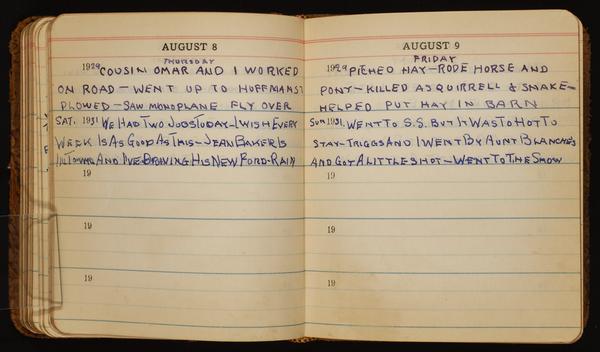 AUGUST 8
THURSDAY
1929 COUSIN OMAR AND I WORKED
ON ROAD - WENT UP TO HUFFMANS
PLOWED - SAW MONOPLANE FLY OVER
SAT. 1931 WE HAD TWO JOBS TODAY - I WISH EVERY
WEEK IS AS GOOD AS THIS - JEAN BAKER IS
IN TOWN AND I'VE DRIVING HIS NEW FORD - RAIN
19
19
19
AUGUST 9
FRIDAY
1929 PITHED HAY - RODE HORSE AND
PONY - KILLED A SQUIRRELL & SNAKE -
HELPED PUT HAY IN BARN
SUN 1931. WENT TO S.S. BUT IT WAS TO HOT TO
STAY - TRIGGS AND I WENT BY AUNT BLANCHE'S
AND GOT A LITTLE SHOT - WENT TO THE SHOW
19
19
19